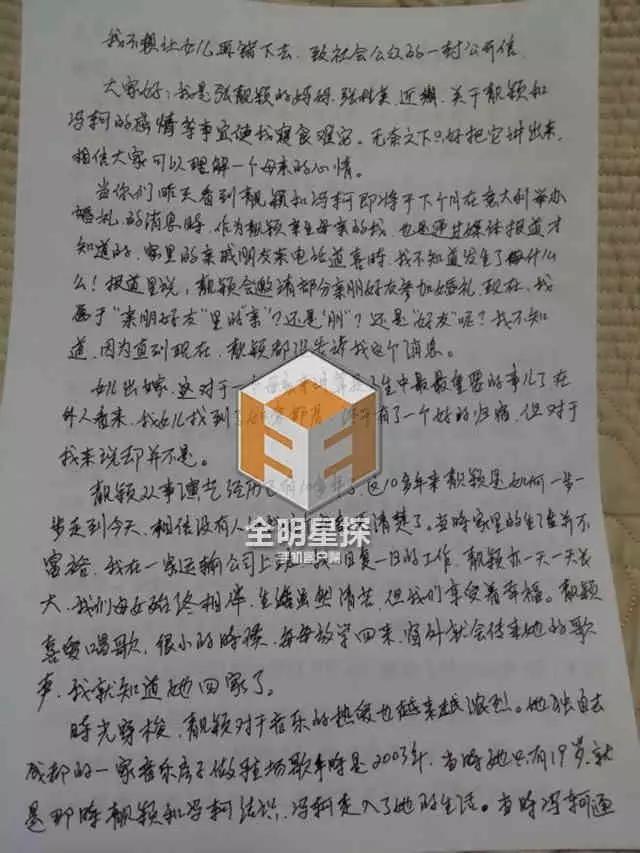 我不想让女儿再错下去，致社会公众的一封公开信
大家好：我是张靓颖的妈妈，张桂英，近期，关于靓颖和
冯轲的婚情等事宜使我寝食难安。无奈之下只好把它讲出来，
相信大家可以理解一个母亲的心情。
当你们昨天看到靓颖和冯轲即将于下个月在意大利举办
婚礼的消息时，作为靓颖亲生母亲的我，也是通过媒体报道才
知道的，家里的亲戚朋友来电话道喜时，我不知道发生了什么
么！报道里说，靓颖会邀请部分亲朋好友参加婚礼，现在，我
属于"亲朋好友"里的"亲"？还是"朋"？还是"好友"呢？我不知
道，因为直到现在，靓颖都没告诉我这个消息。
女儿出嫁，这对于一个母亲来说是一生中最最重要的事儿了在
外人看来，我女儿找到了，终于有了一个好的归宿，但对于
我来说却并不是。
靓颖从事演艺经历已有10多年，这10多年来靓颖是如何一步一
步走到今天，相信没有人清楚了。当时家里的生活并不
富裕，我在一家运输公司上班，日复一日的工作，靓颖亦一天一天长
大，我们母女始终相伴，生活虽然清苦，但我们享受着幸福。靓颖
喜爱唱歌，很小的时候，每每放学回来，窗外就会传来她的歌
声，我就知道她回家了。
时光穿梭，靓颖对于音乐的热爱也越来越浓烈。她独自去
成都的一家音乐房子做驻场歌手时是2003年，当时她只有19岁，就
是那时靓颖和冯轲结识，冯轲走入了她的生活。当时冯轲通
全明星探
手机客户端